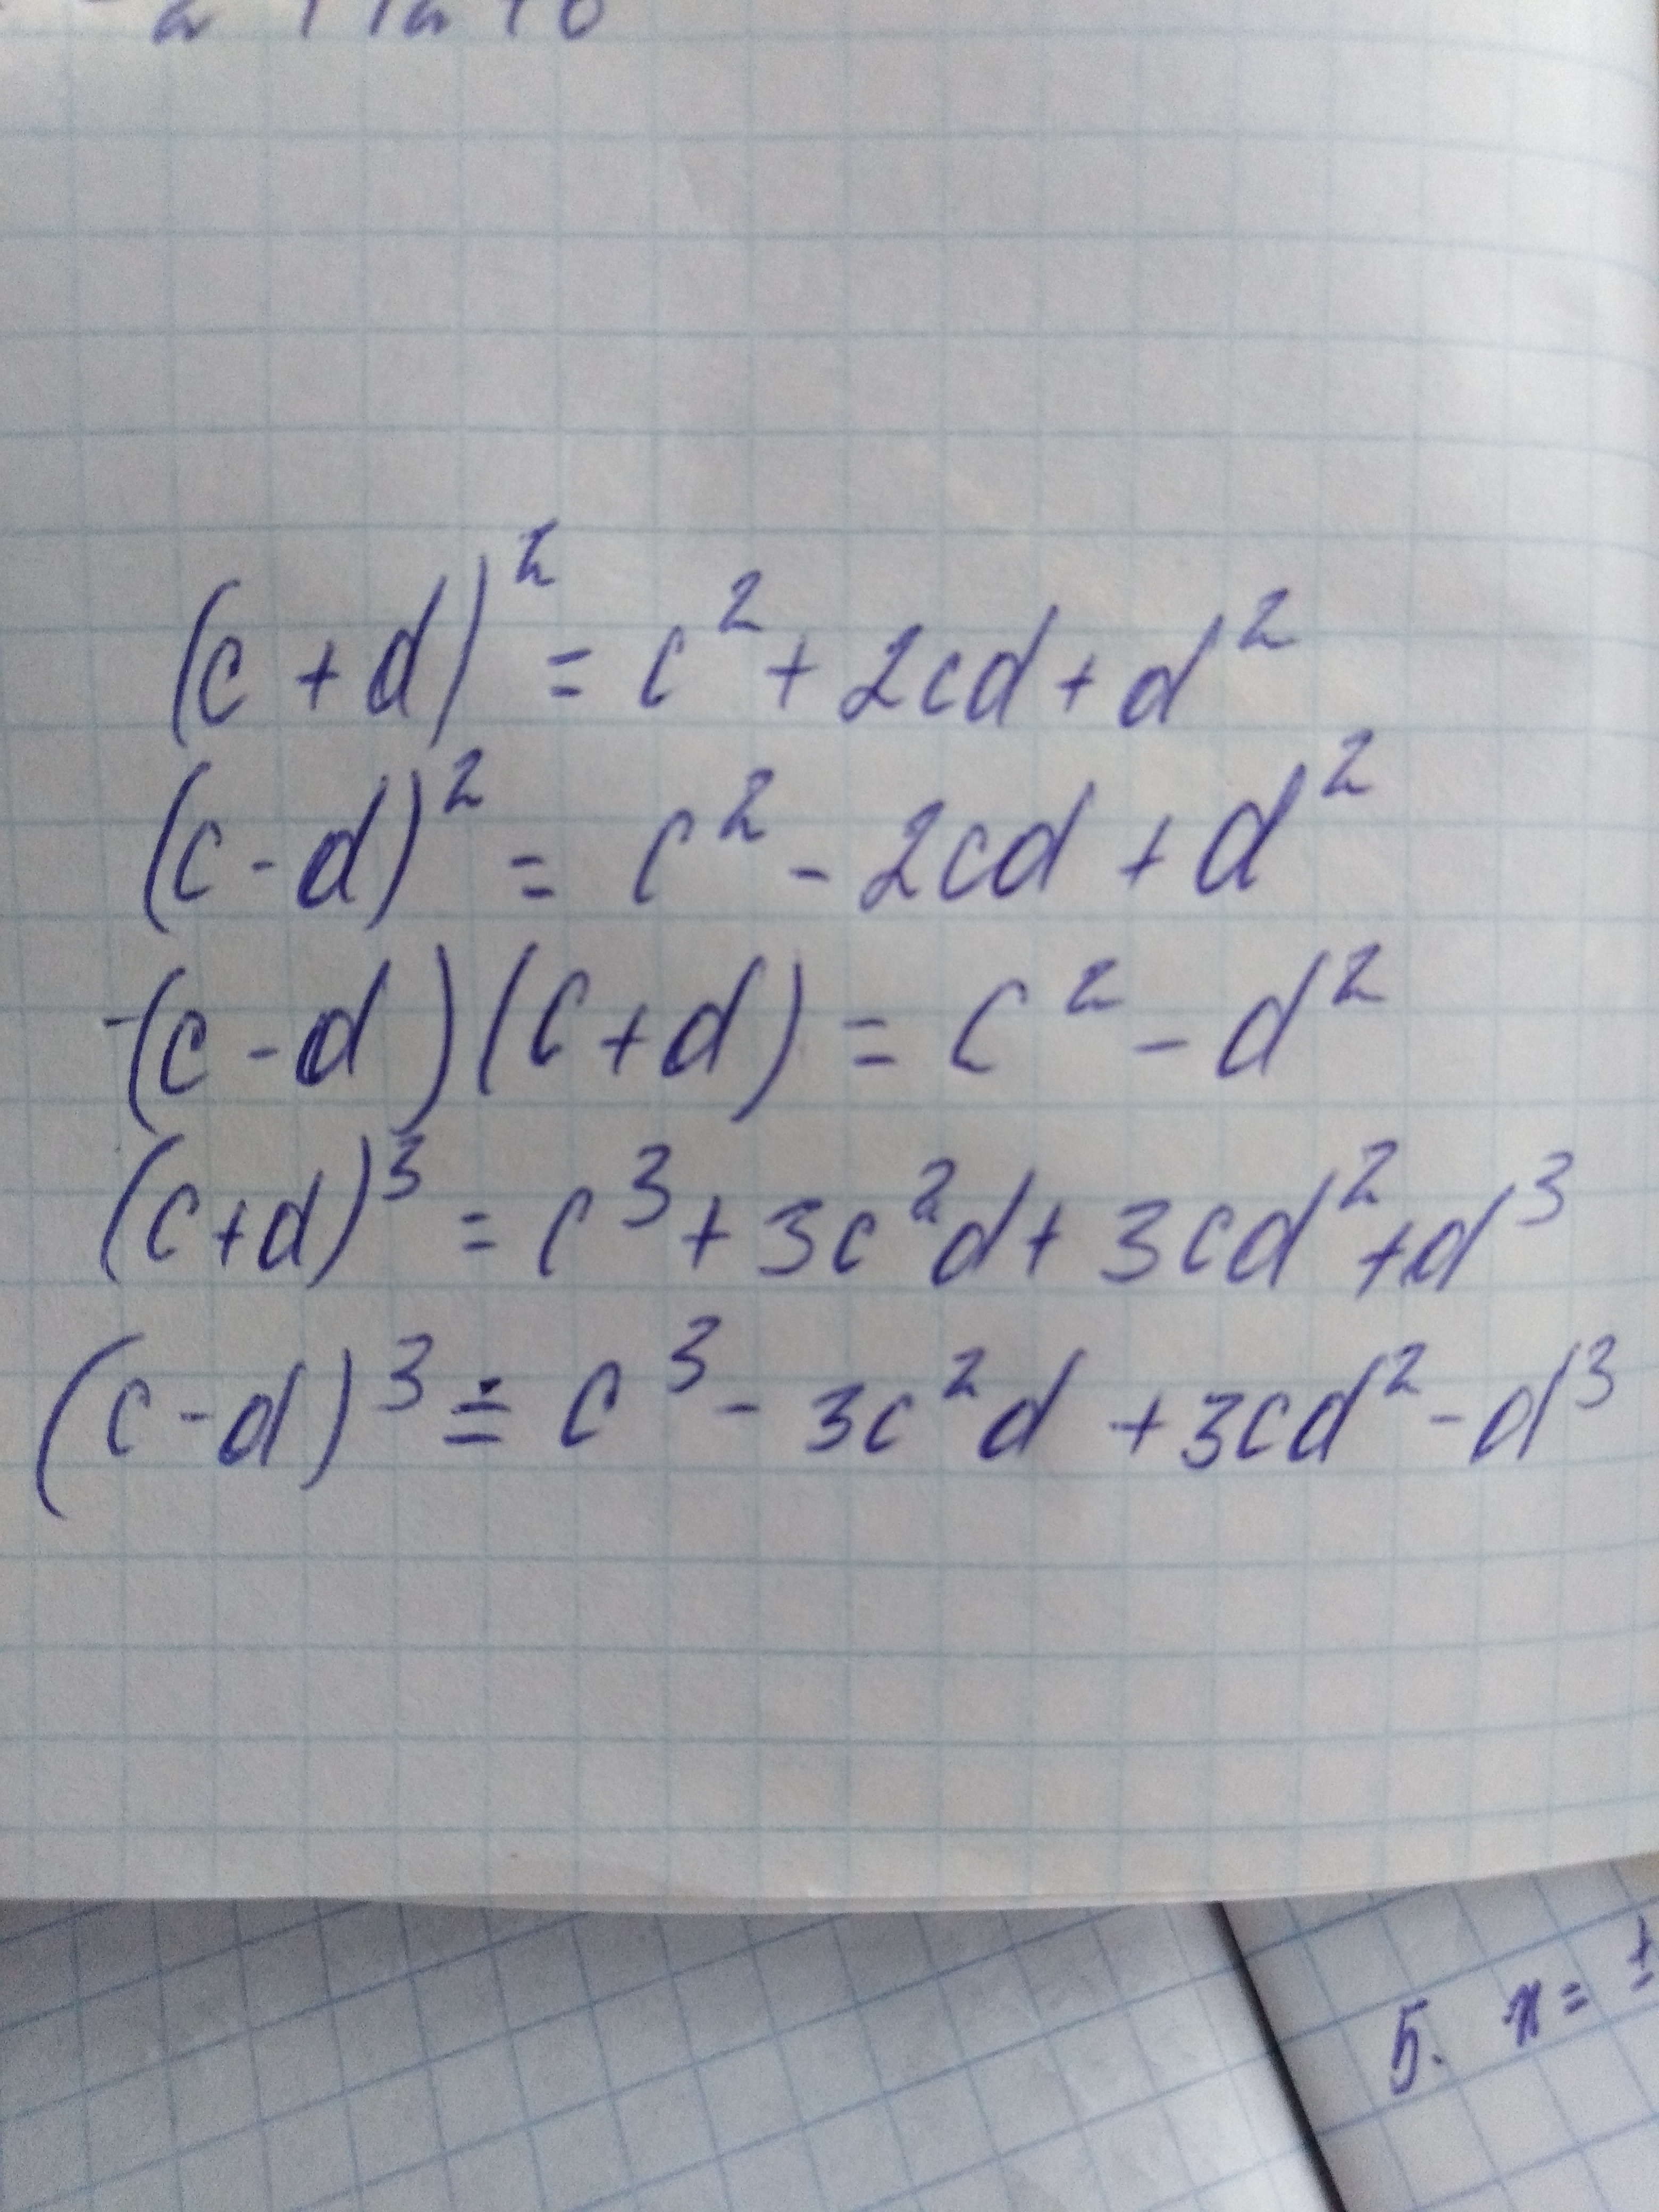 (c + d)² = c² + 2cd + d²
(c - d)² = c² - 2cd + d²
-(c - d)(c + d) = c² - d²
(c + d)³ = c³ + 3c²d + 3cd² + d³
(c - d)³ = c³ - 3c²d + 3cd² - d³
5. x = ±